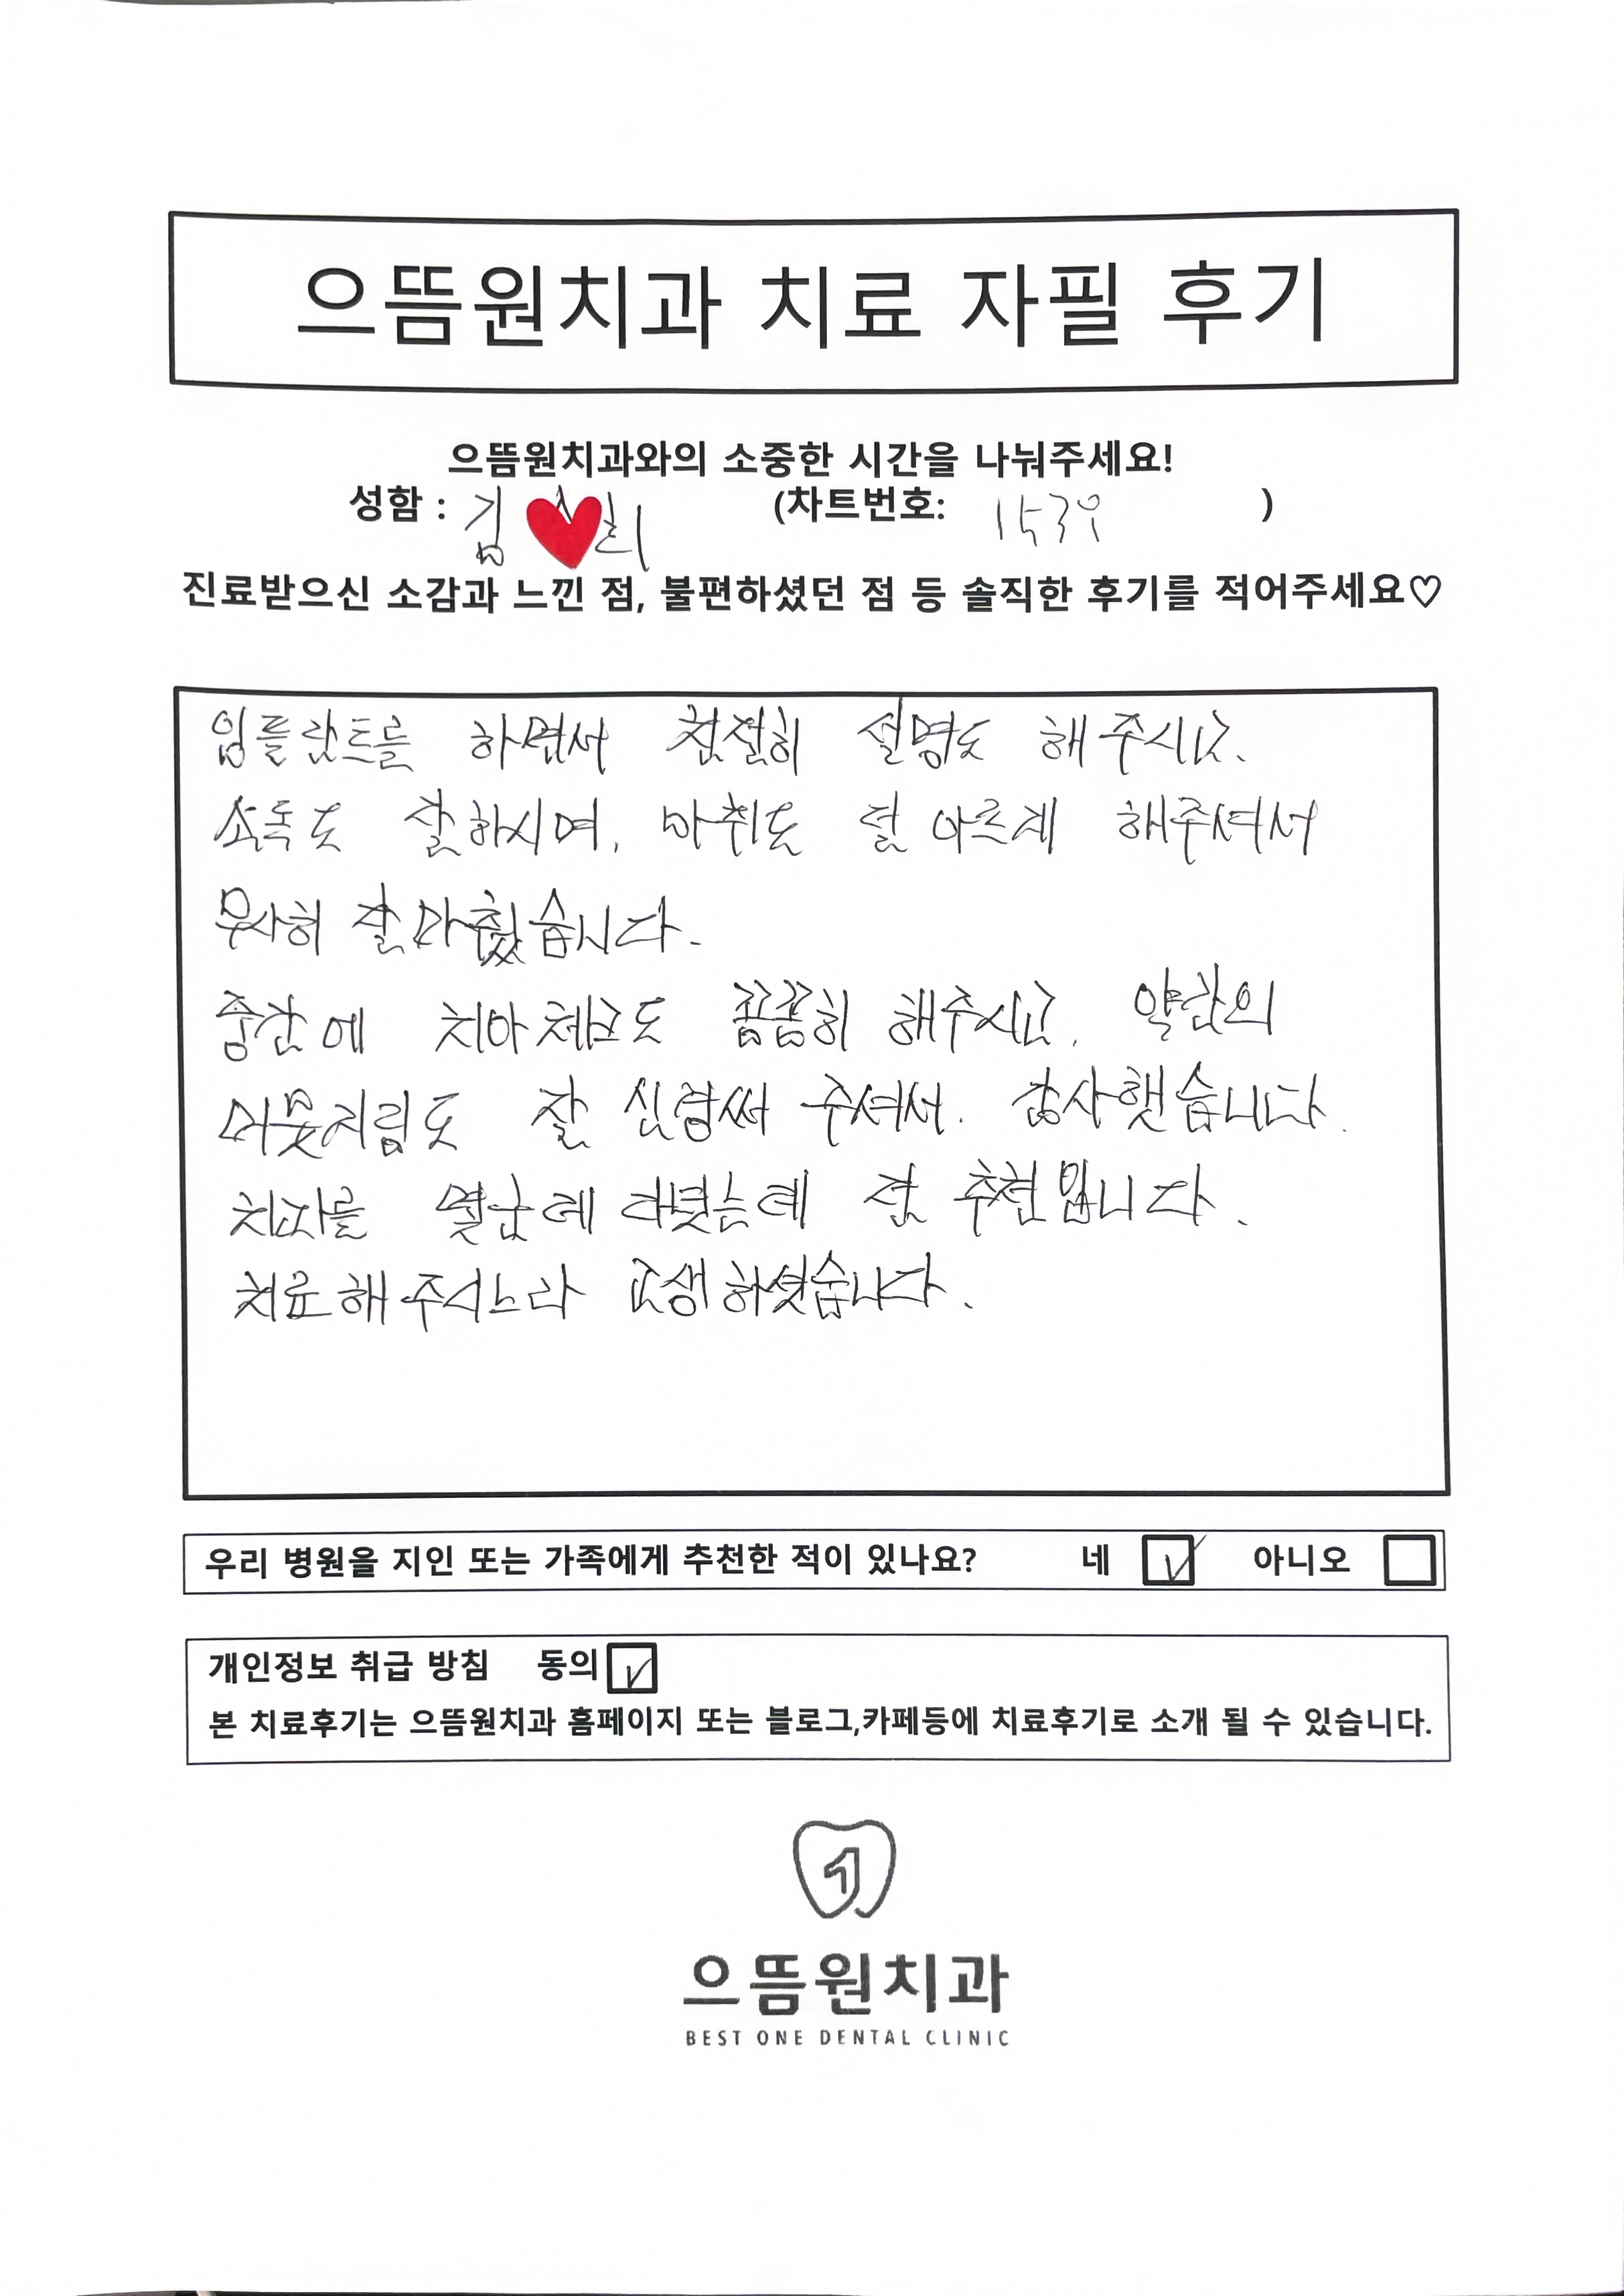 으뜸원치과 치료 자필 후기
으뜸원치과와의 소중한 시간을 나눠주세요!
성함 : 김 (차트번호: 1539 )
진료받으신 소감과 느낀 점, 불편하셨던 점 등 솔직한 후기를 적어주세요♡
임플란트를 하면서 친절히 설명도 해주시고.
소독도 잘하시며, 마취도 덜 아프게 해주셔서
무사히 잘마췄습니다.
중간에 치아체크도 꼼꼼히 해주시고, 약간의
머뭇거림도 잘 신경써 주셔서. 감사햇습니다.
치과를 몇군데 다녓는데 전 추천입니다.
치료해주시느라 고생하셧습니다.
우리 병원을 지인 또는 가족에게 추천한 적이 있나요? 네 아니오
개인정보 취급 방침 동의
본 치료후기는 으뜸원치과 홈페이지 또는 블로그,카페등에 치료후기로 소개 될 수 있습니다.
1
으뜸원치과
BEST ONE DENTAL CLINIC